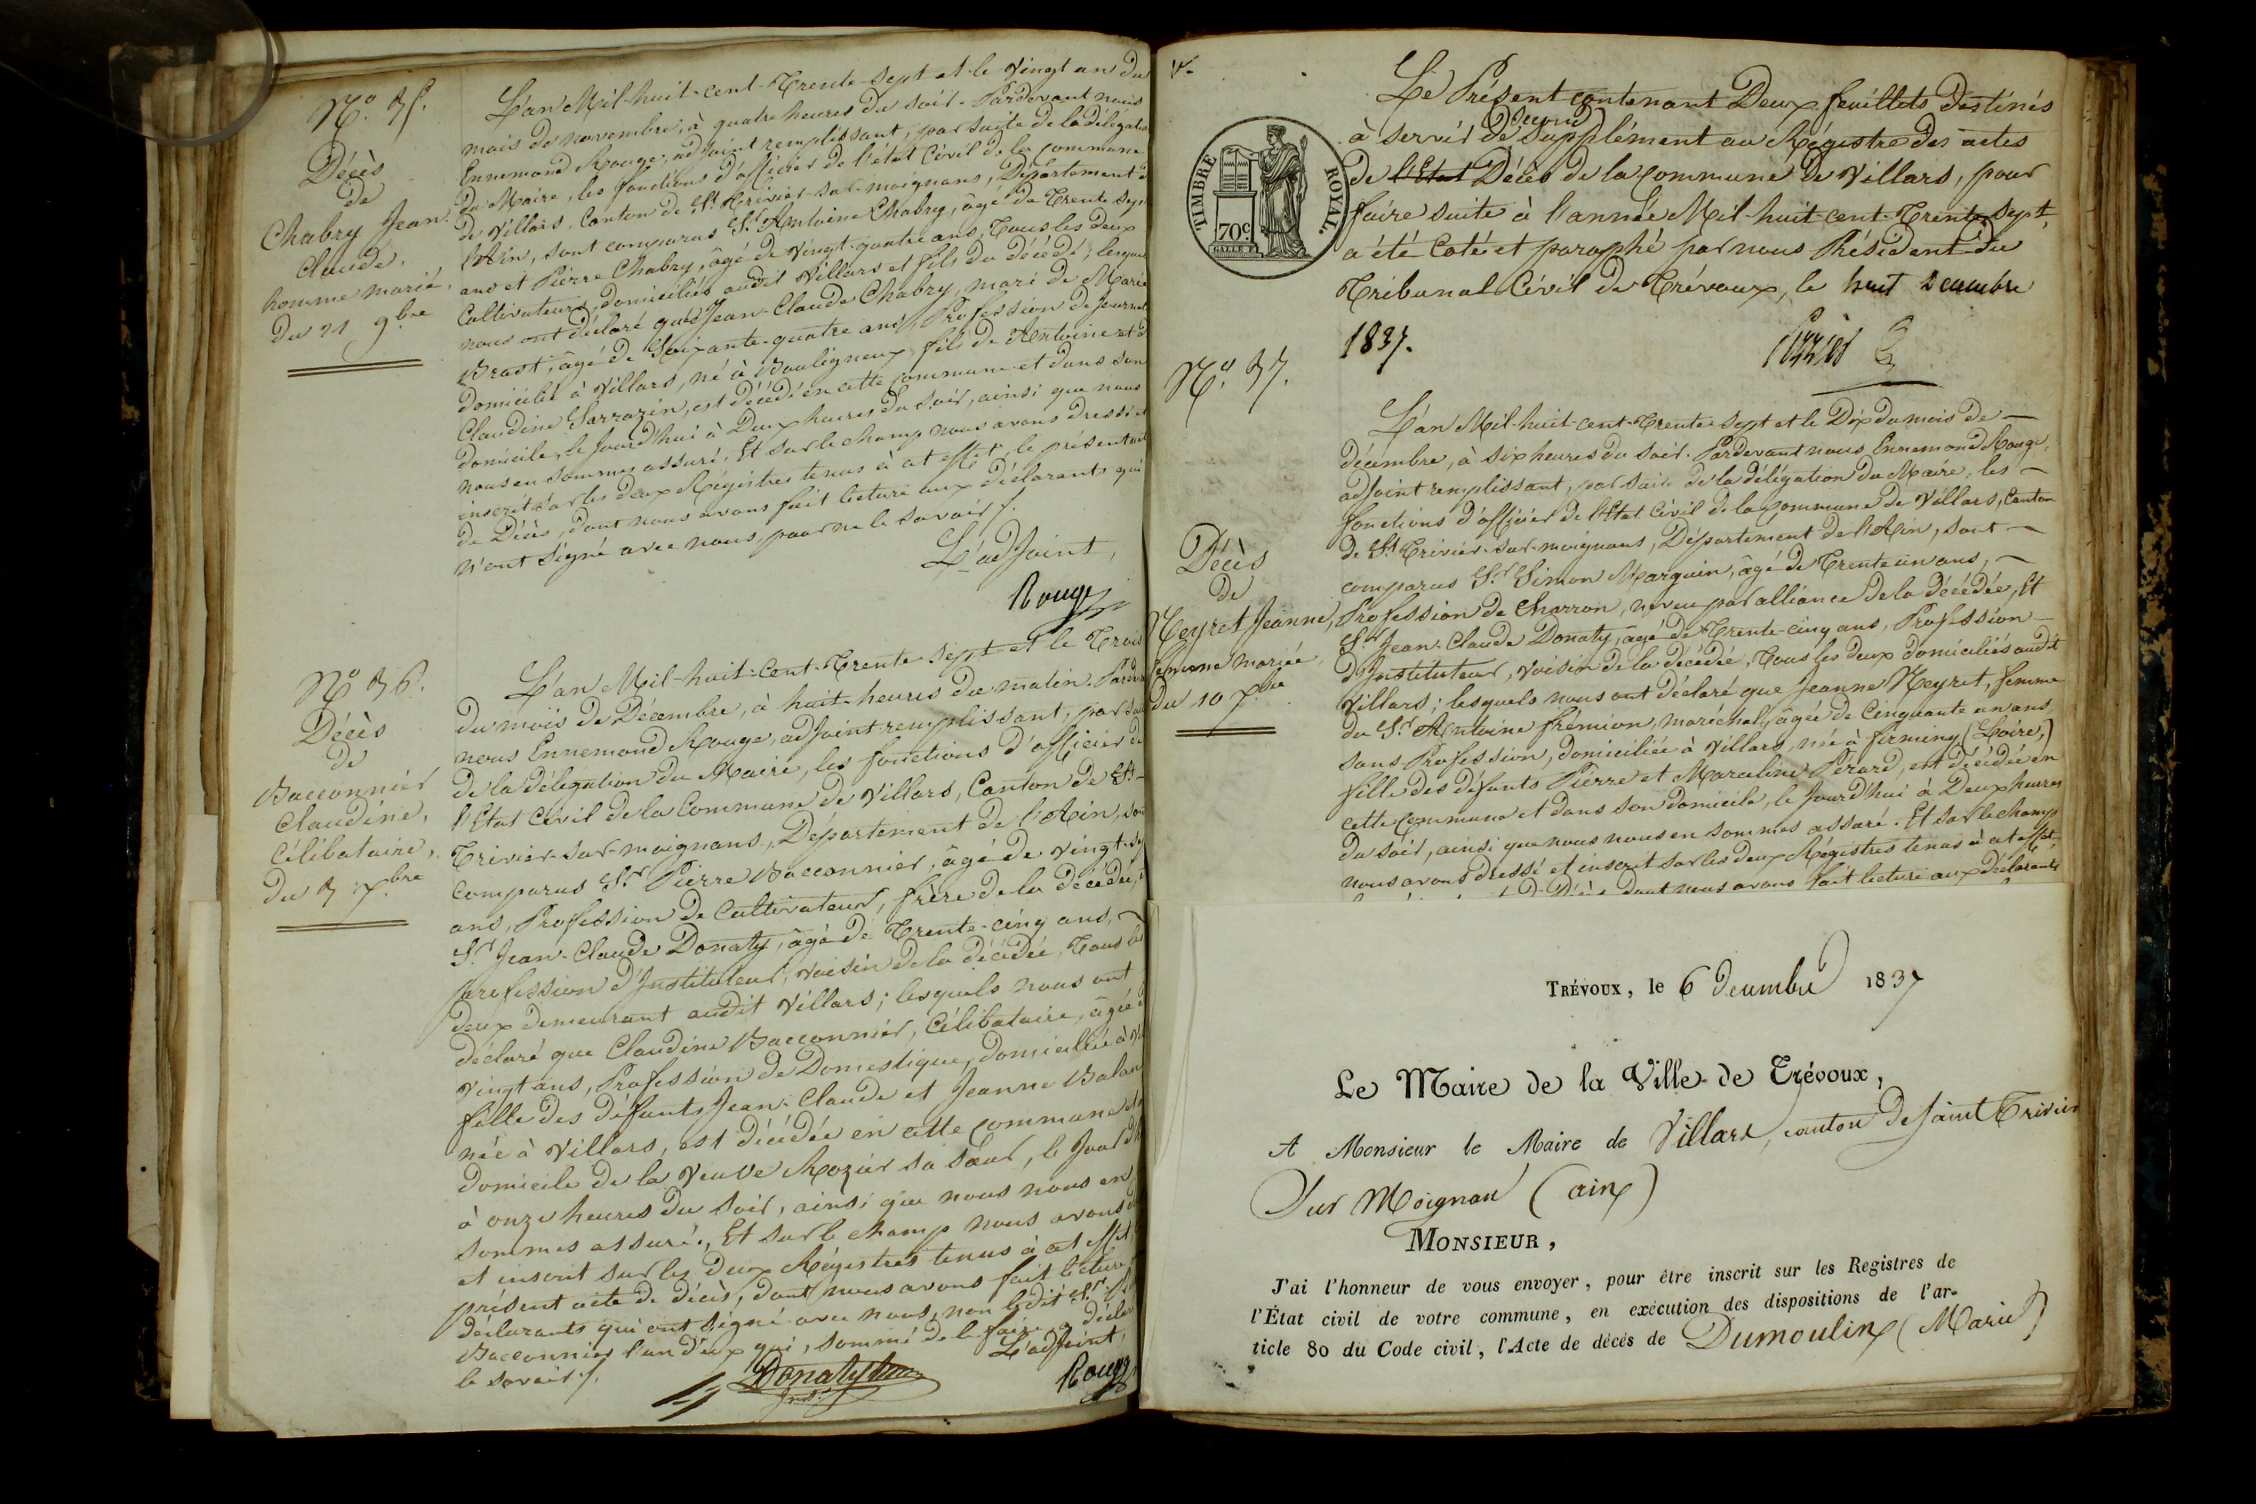 N.º 35.
Décès
de
Chabry Jean-
Claude,
homme marié,
du 21 9.bre
L'an Mil-huit-cent-Trente-Sept et le vingt un du
mois de novembre, à quatre heures du soir. Pardevant nous
Ennemond Rouge, adjoint remplissant, par suite de la délégation
du Maire, les fonctions d'officier de l'état Civil de la commune
de Villars, Canton de St. Trivier-sur-moignans, Département de
l'Ain, sont comparus Sr. Antoine Chabry, âgé de Trente Sept
ans et Pierre Chabry, âgé de Vingt-quatre ans, Tous les deux
Cultivateurs, domiciliés audit Villars et fils du décédé; lesquels
nous ont déclaré que Jean-Claude Chabry, mari de Marie
Brast, âgé de Soixante-quatre ans, Profession de Journal
domicilié à Villars, né à Bouligneux, fils de Antoine et d
Claudine Sarrazin, est décédé en cette commune et dans son
domicile, le Jourd'hui à Deux heures du soir, ainsi que nous
nous en sommes assuré. Et sur le champ nous avons dressé et
inscrit sur les deux Régistres tenus à cet effet, le présent acte
de Décès, dont nous avons fait lecture aux déclarants qui
n'ont signé avec nous, pour ne le savoir /.
L'adjoint,
Rouge
Nº 36.
Décès
de
Bacconnier
Claudine,
Célibataire,
du 3 X.bre
L'an Mil-huit-Cent-Trente Sept et le Trois
du mois de Décembre, à huit heures du matin. Pardev
nous Ennemond Rouge, adjoint remplissant, par sui
de la délégation du Maire, les fonctions d'officier de
l'Etat Civil de la Commune de Villars, Canton de St-
Trivier-sur-moignans, Département de l'Ain, son
comparus Sr. Pierre Bacconnier, âgé de vingt-se
ans, Profession de Cultivateur, frère de la décédée,
Sr. Jean-Claude Donaty, âgé de Trente-cinq ans,
profession d'Instituteur, voisin de la décédée, Tous les
deux demeurant audit Villars; lesquels nous ont
déclaré que Claudine Bacconnier, Célibataire, âgée
vingt ans, Profession de Domestique, domiciliée à Vi
fille des défunts Jean-Claude et Jeanne Balan
née à Villars, est décédée en cette commune et
domicile de la Veuve Rozier sa sœur, le Jourdh
à onze heures du soir, ainsi que nous nous en
sommes assuré. Et sur le champ nous avons
et inscrit sur les deux Régistres tenus à cet effet,
présent acte de décès, dont nous avons fait lecture
déclarants qui ont signé avec nous, non ledit Sr.
Bacconnier l'un d'eux qui, sommé de le faire, a décla
le savoir /.
L'adjoint,
Donaty
Rouge
Le Présent contenant Deux feuillets destinés
à servir de second Supplément au Régistre des actes
de l'Etat Décès de la Commune de Villars, pour
faire suite à l'année Mil-huit-cent-Trente Sept,
a été Coté et paraphé par nous Président du
Tribunal Civil de Trévoux, le huit Decembre
1837.
TIMBRE ROYAL.
70c.
N.º 37.
Décès
de
Neyret Jeanne,
femme mariée,
du 10 X.bre
L'an Mil-huit-cent-Trente Sept et le Dix du mois de
décembre, à six heures du soir. Pardevant nous Ennemond Rouge,
adjoint remplissant, par suite de la délégation du Maire, les
fonctions d'officier de l'Etat Civil de la Commune de Villars, Canton
de St. Trivier-sur-moignans, Département de l'Ain, sont
comparus Sr. Simon Marguin, âgé de Trente un ans,
Profession de Charron, neveu par alliance de la décédée, Et
Sr. Jean-Claude Donaty, âgé de Trente-cinq ans, Profession
d'Instituteur, Voisin de la décédée, Tous les deux domiciliés audit
Villars; lesquels nous ont déclaré que Jeanne Neyret, femme
du Sr. Antoine frémion, maréchal, âgée de Cinquante un ans,
sans Profession, domiciliée à Villars, née à firminy (Loire,)
fille des défunts Pierre et Marceline Pérard, est décédée en
cette Commune et dans son domicile, le Jourd'hui à Deux heures
du soir, ainsi que nous nous en sommes assuré. Et sur le champ
nous avons dressé et inscrit sur les deux Régistres tenus à cet effet,
dont nous avons fait lecture aux déclarants
TRÉVOUX, le 6 decembre 1837
Le Maire de la Ville de Trévoux,
A Monsieur le Maire de Villars, canton de Saint Trivier
Sur Moignan (ain)
MONSIEUR,
J'ai l'honneur de vous envoyer, pour être inscrit sur les Registres de
l'État civil de votre commune, en exécution des dispositions de l'ar-
ticle 80 du Code civil, l'Acte de décès de Dumoulin (Marie)